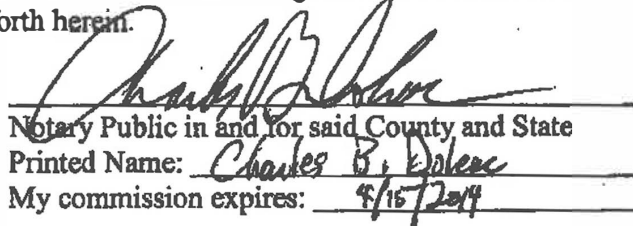 forth herein.
Notary Public in and for said County and State
Printed Name: Charles B.
My commission expires: 4/15/2014